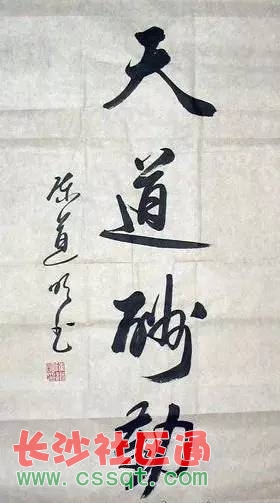 天道酬勤
陈道明书
长沙社区通
www.cssqt.com